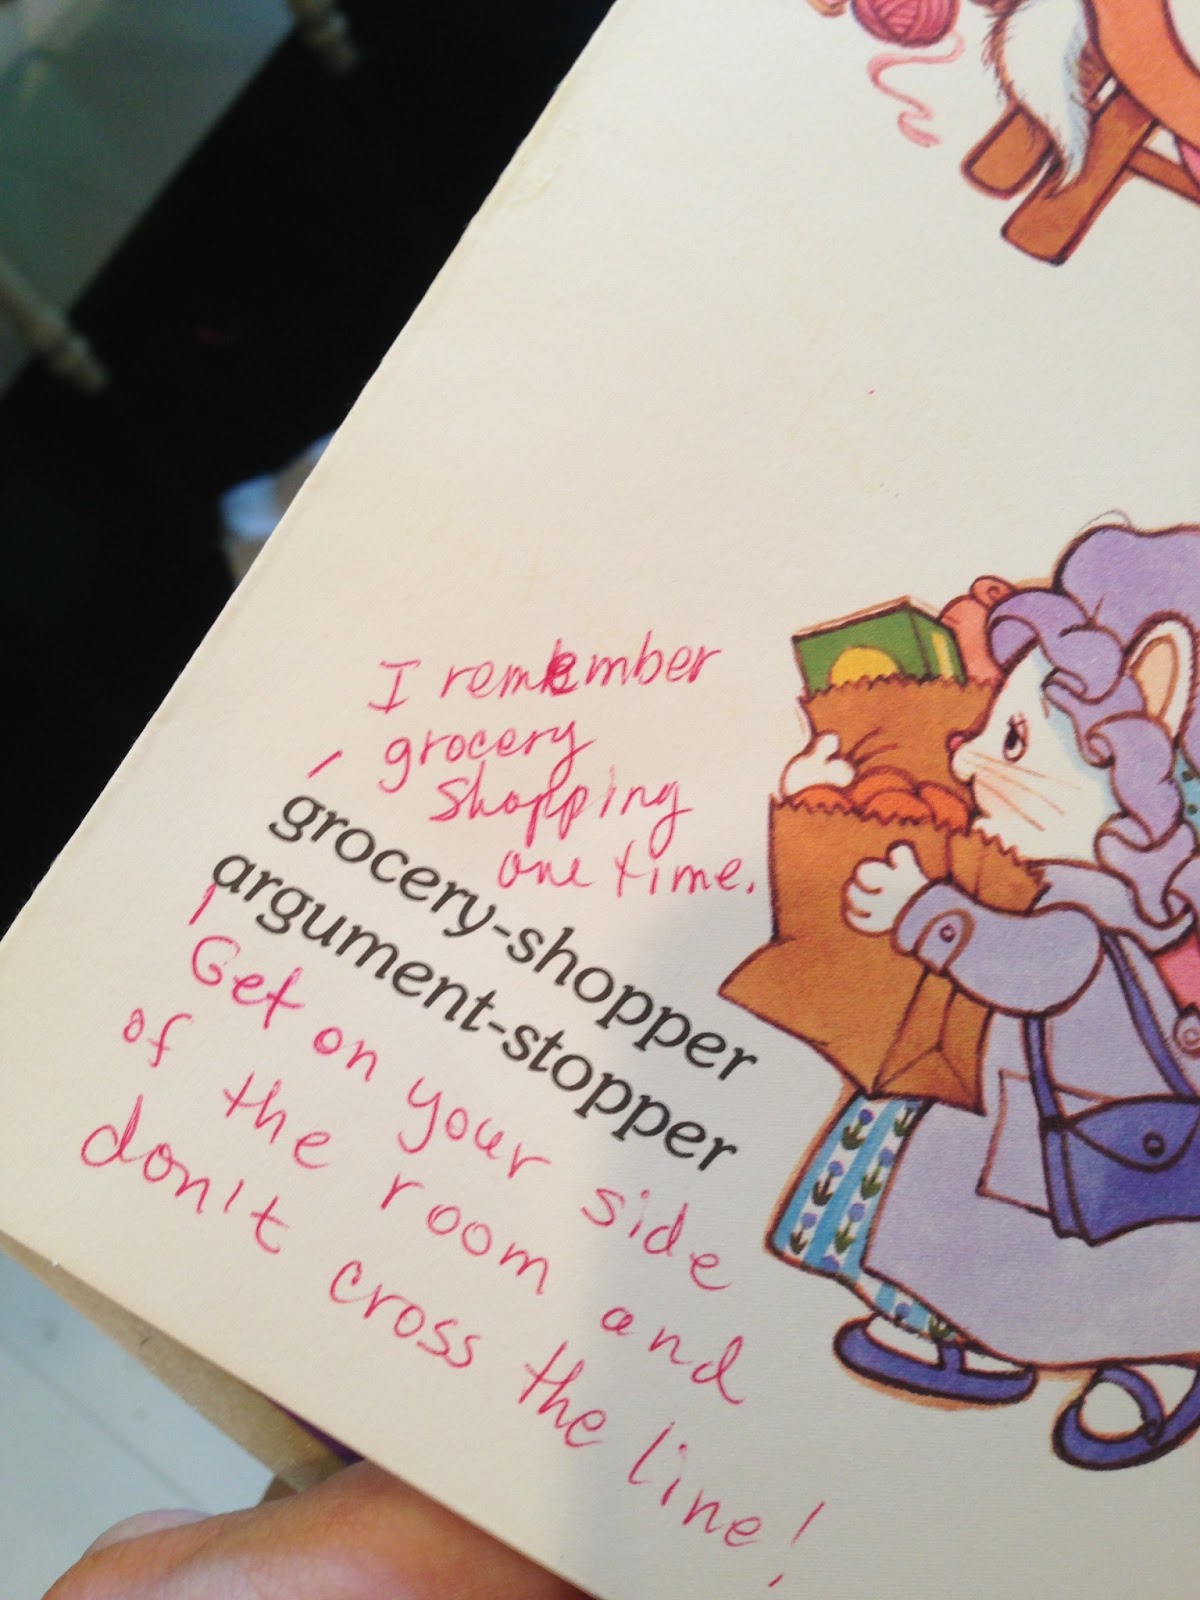 I remember
grocery
shopping
one time.
grocery-shopper
argument-stopper
Get on your side
of the room and
don't cross the line!